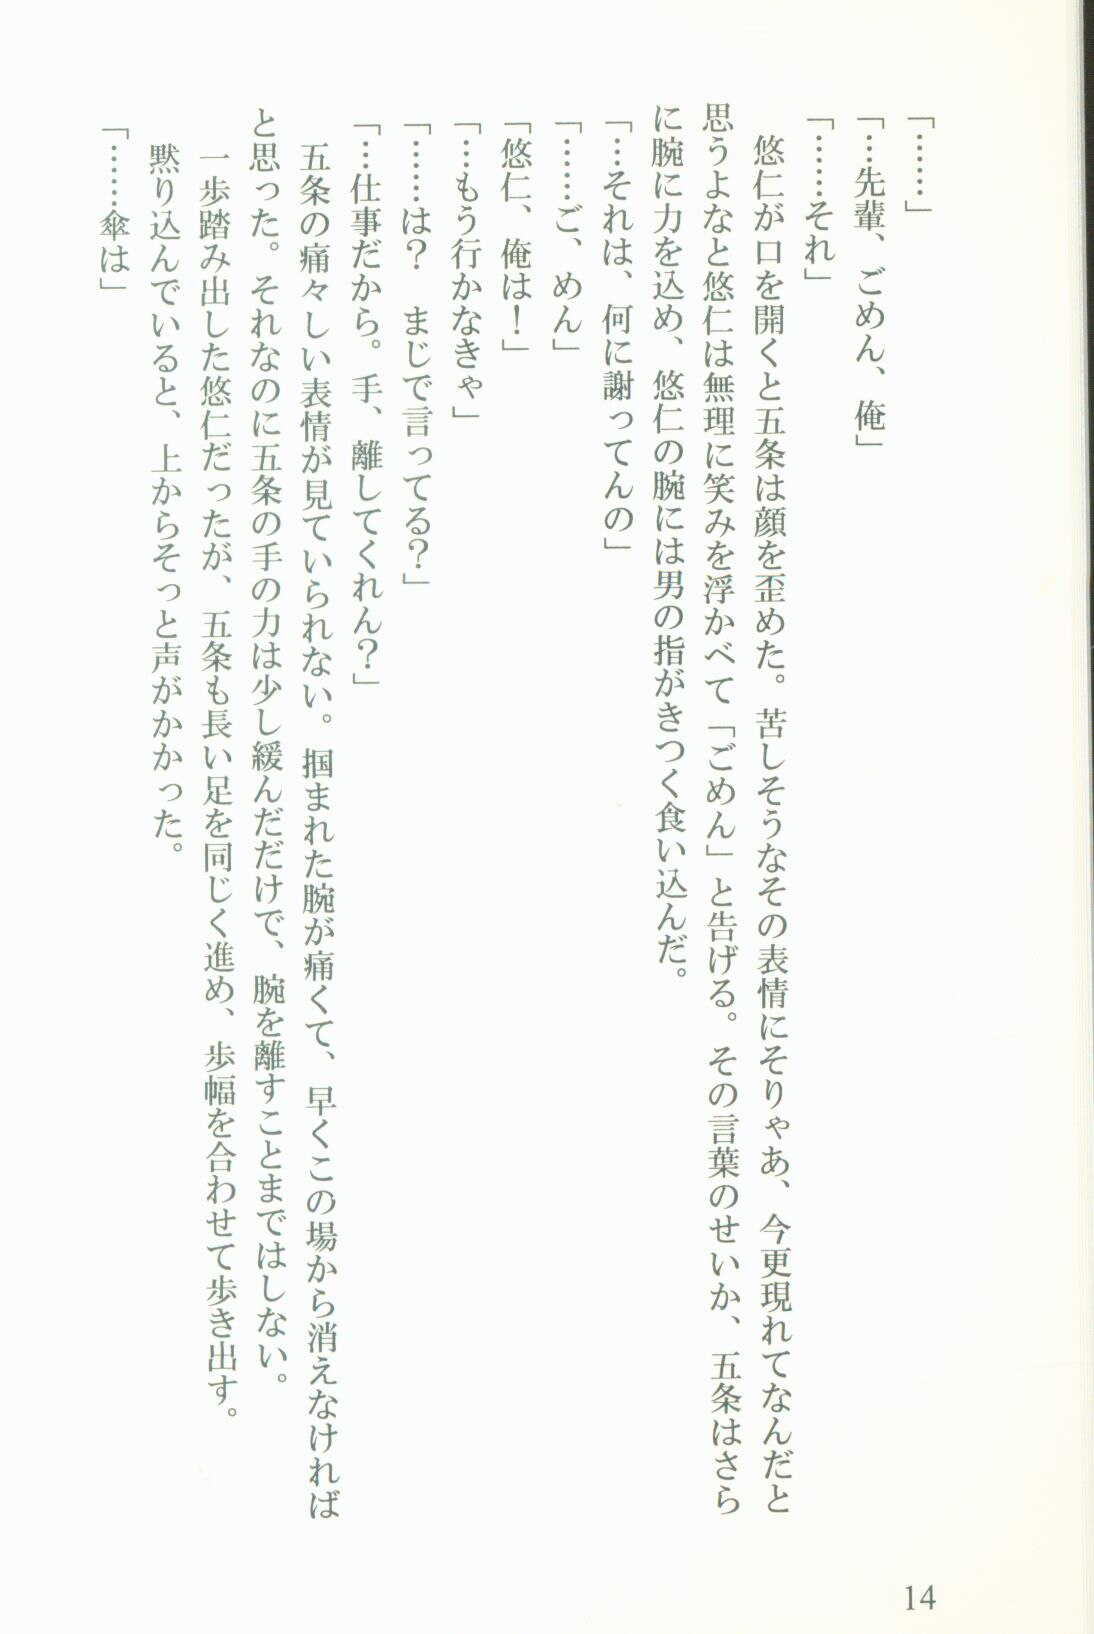 「……」
「…先輩、ごめん、俺」
「……それ」
　悠仁が口を開くと五条は顔を歪めた。苦しそうなその表情にそりゃあ、今更現れてなんだと
思うよなと悠仁は無理に笑みを浮かべて「ごめん」と告げる。その言葉のせいか、五条はさら
に腕に力を込め、悠仁の腕には男の指がきつく食い込んだ。
「…それは、何に謝ってんの」
「……ご、めん」
「悠仁、俺は！」
「…もう行かなきゃ」
「……は？　まじで言ってる？」
「…仕事だから。手、離してくれん？」
　五条の痛々しい表情が見ていられない。掴まれた腕が痛くて、早くこの場から消えなければ
と思った。それなのに五条の手の力は少し緩んだだけで、腕を離すことまではしない。
　一歩踏み出した悠仁だったが、五条も長い足を同じく進め、歩幅を合わせて歩き出す。
　黙り込んでいると、上からそっと声がかかった。
「……傘は」
14